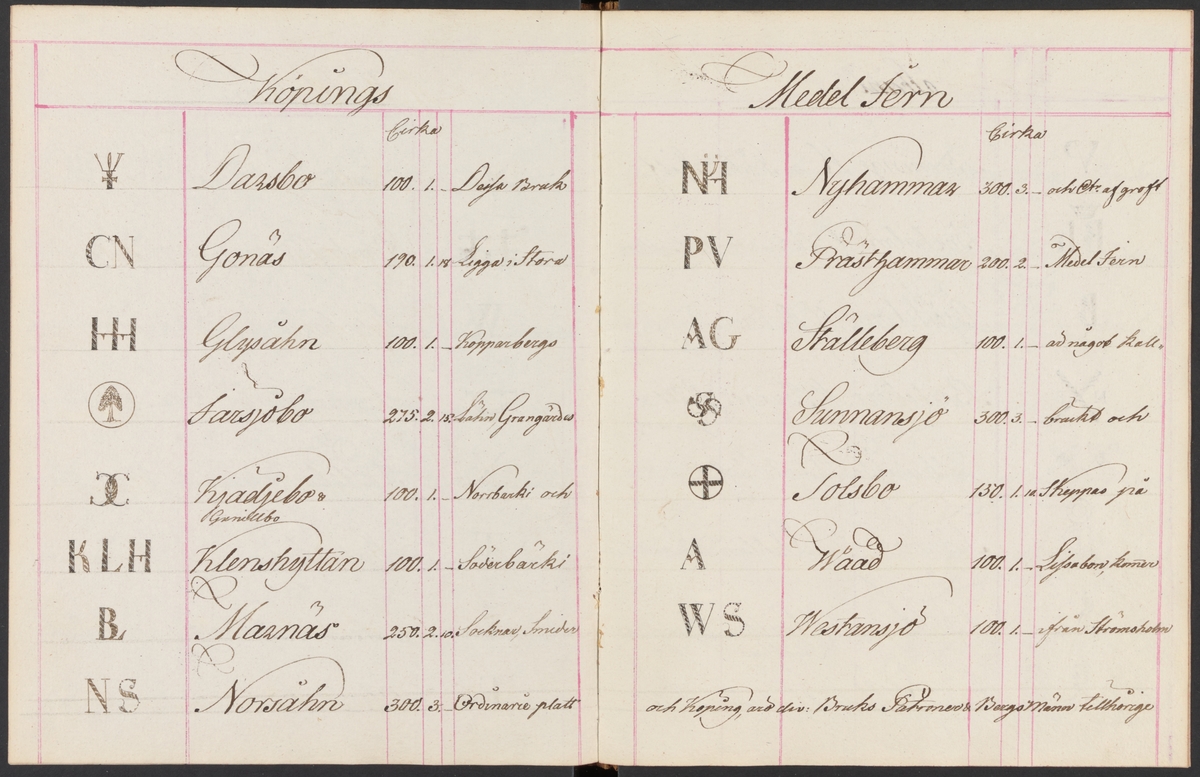 Köpings
Cirka
Darsbo 100. 1. – Dessa Bruk
CN Gonäs 190. 1. 18 Ligga i Stora
HH Glysåhn 100. 1. – Kopparbergs
Farsjöbo 275. 2. 15. Lähn Grangärdes
Kjadjebo &
Gunillbo 100. 1. – Norrbärki och
KLH Klenshyttan 100. 1. – Söderbärki
BL Marnäs 250. 2. 10. Socknar, Smider
NS Norsåhn 300. 3. – Ordinarie platt
Medel Jern
Cirka
NH Nyhammar 300. 3. – och Otr. af groft
PV Prästhammar 200. 2. – Medel Jern
AG Ställeberg 100. 1. – äd något kall-
Sunnansjö 300. 3. – bräckt och
Solsbo 150. 1. 12 Skeppas på
A Wäad 100. 1. – Lissabon, komer
WS Westansjö 100. 1. – ifrån Strömsholm
och Köping, äro div: Bruks Patroner & Bergs Männ tillhörige